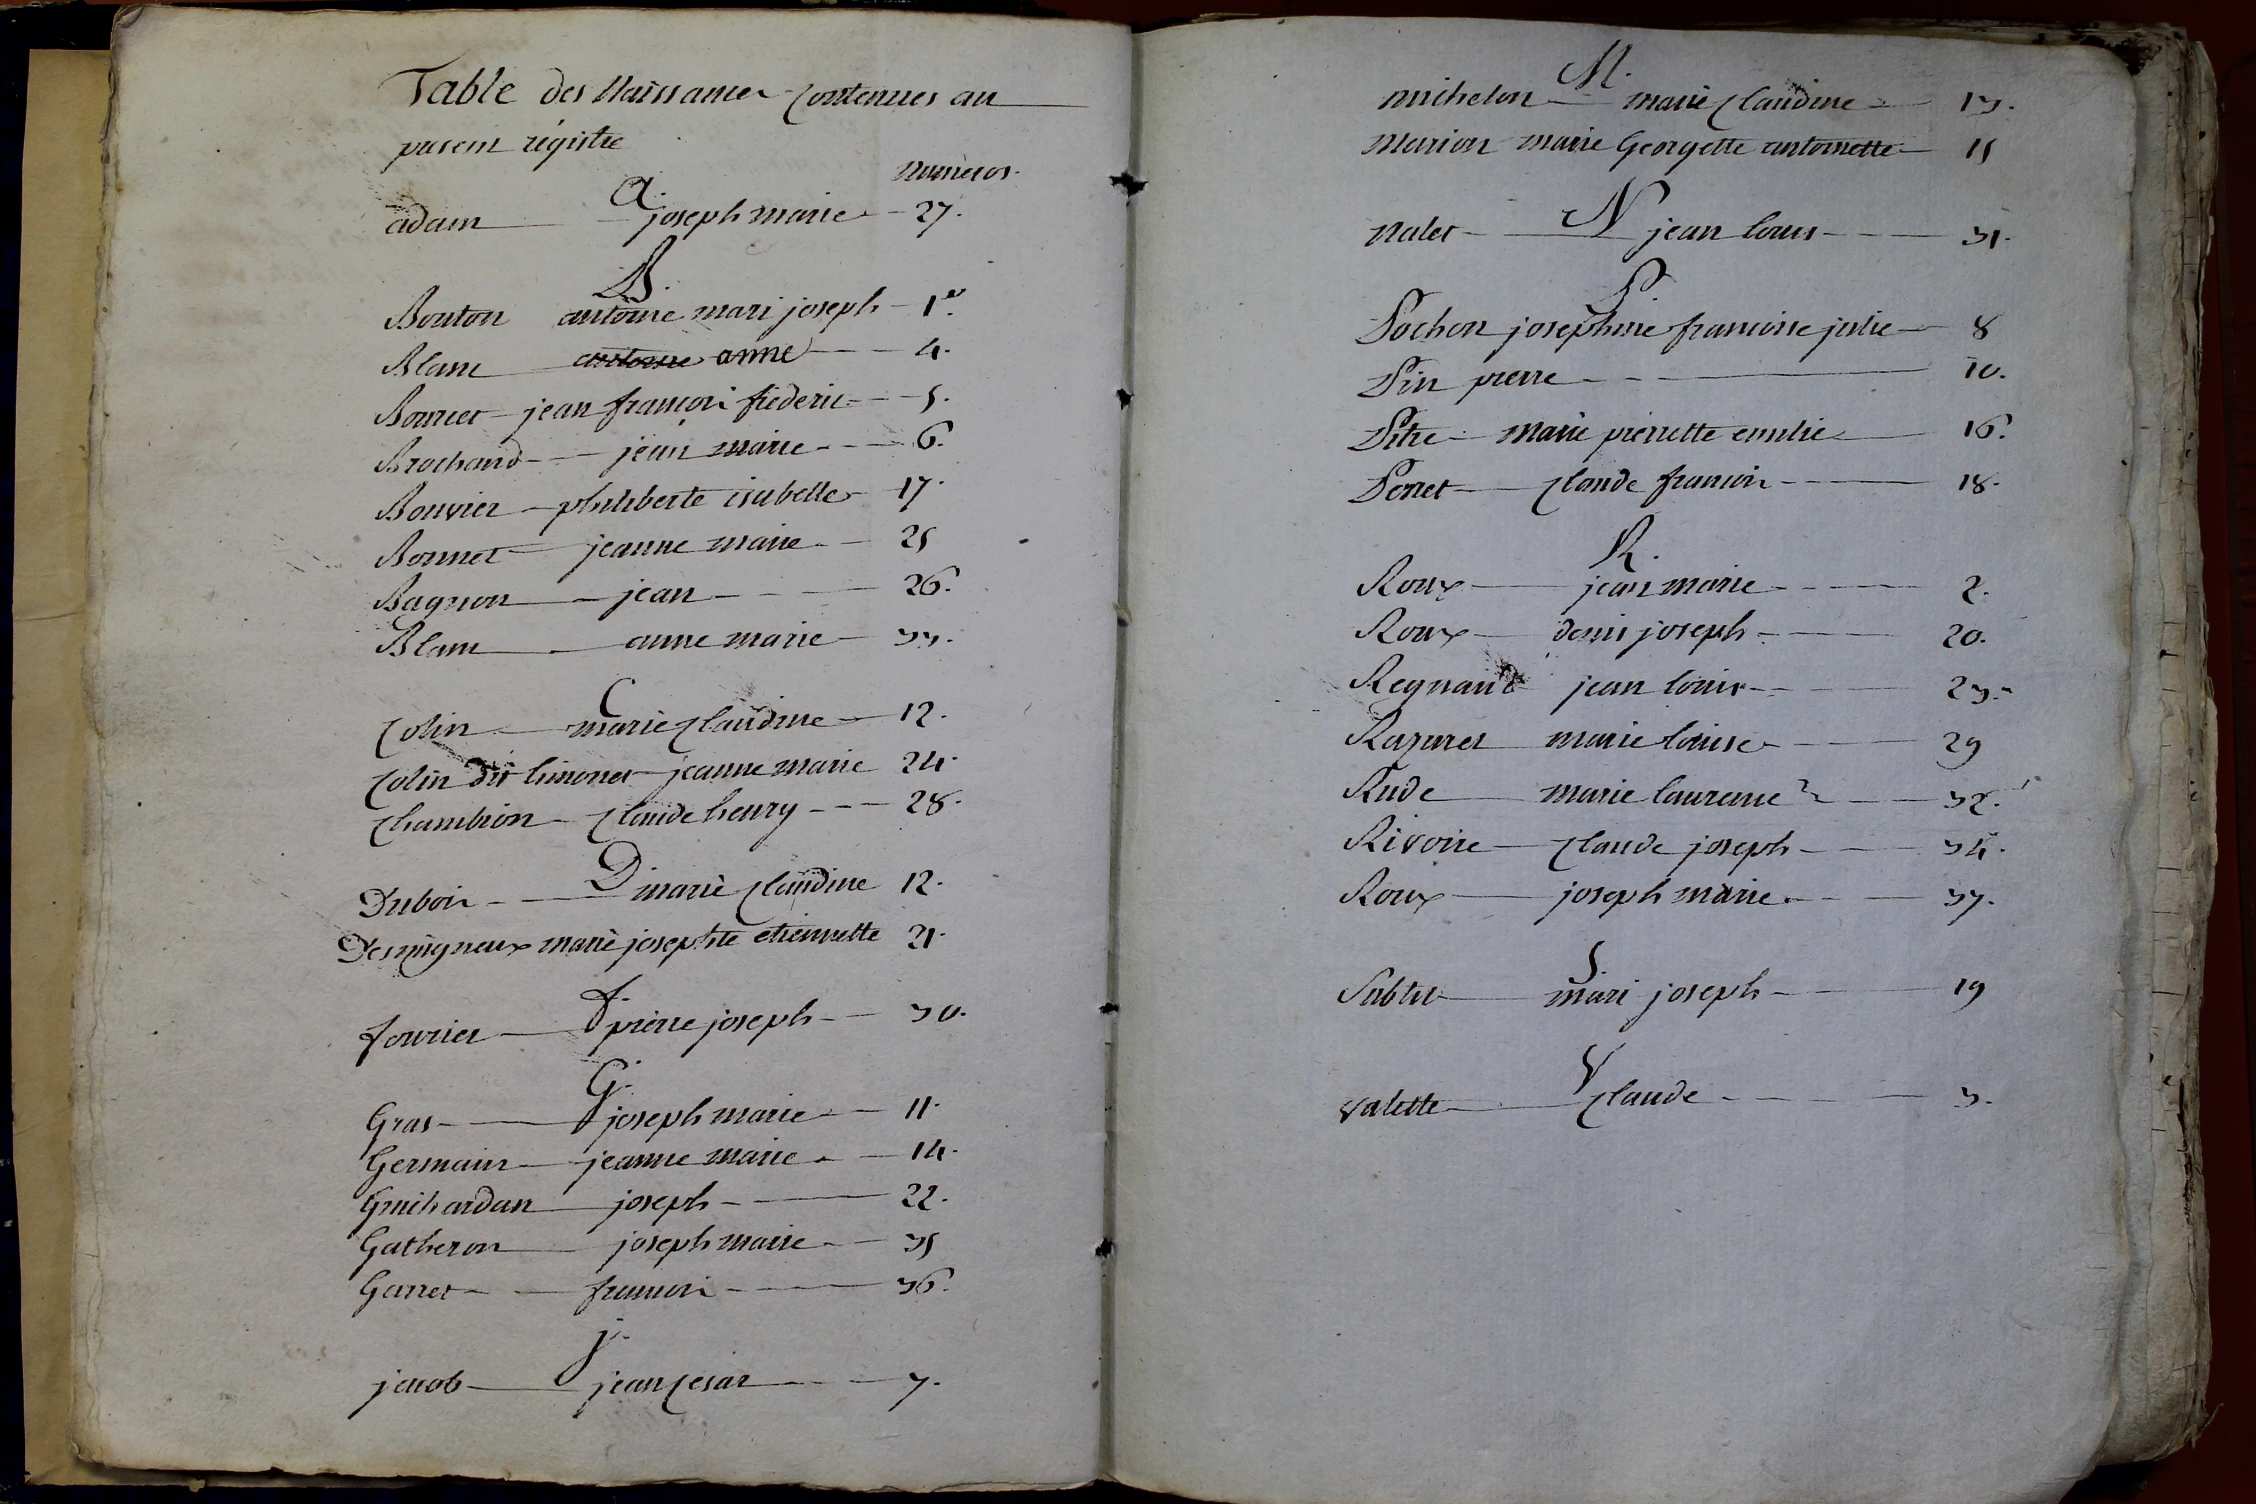 Table des Naissances Contenues au
present régistre
Numèros.
A.
adam joseph marie 27.
B.
Bouton antoine mari joseph 1er
Blanc antoine anne 4.
Bourcet jean francois fréderic 5.
Brochand jean marie 6.
Bouvier philiberte isabelle 17.
Bonnet jeanne marie 25
Bagnon jean 26.
Blanc anne marie 33.
C
Colin marie Claudine 12.
Colin dit limonet jeanne marie 24.
Chambion Claude henry 28.
D
Dubois marie Claudine 12.
Desvigneux marie josephte etiennette 21.
f.
fourier pierre joseph 30.
G.
Gras joseph marie 11.
Germain jeanne marie 14.
Guichardan joseph 22.
Gatheron joseph marie 35
Garret francois 36.
j.
jacob jean Cesar 7.
M.
michelon marie Claudine 13.
Marion marie Georgette antoinette 15
N
Nalet jean louis 31.
P.
Pochon josephine francoise julie 8
Pin pierre 10.
Pitre marie pierrette emilie 16.
Perret Claude francois 18.
R.
Roux jean marie 2.
Roux denis joseph 20.
Regnaud jean louis 23.
Razuret marie louise 29
Rude marie laurence 32.
Rivoire Claude joseph 34.
Roux joseph marie 37.
S.
Sablet mari joseph 19
V
Valette Claude 3.